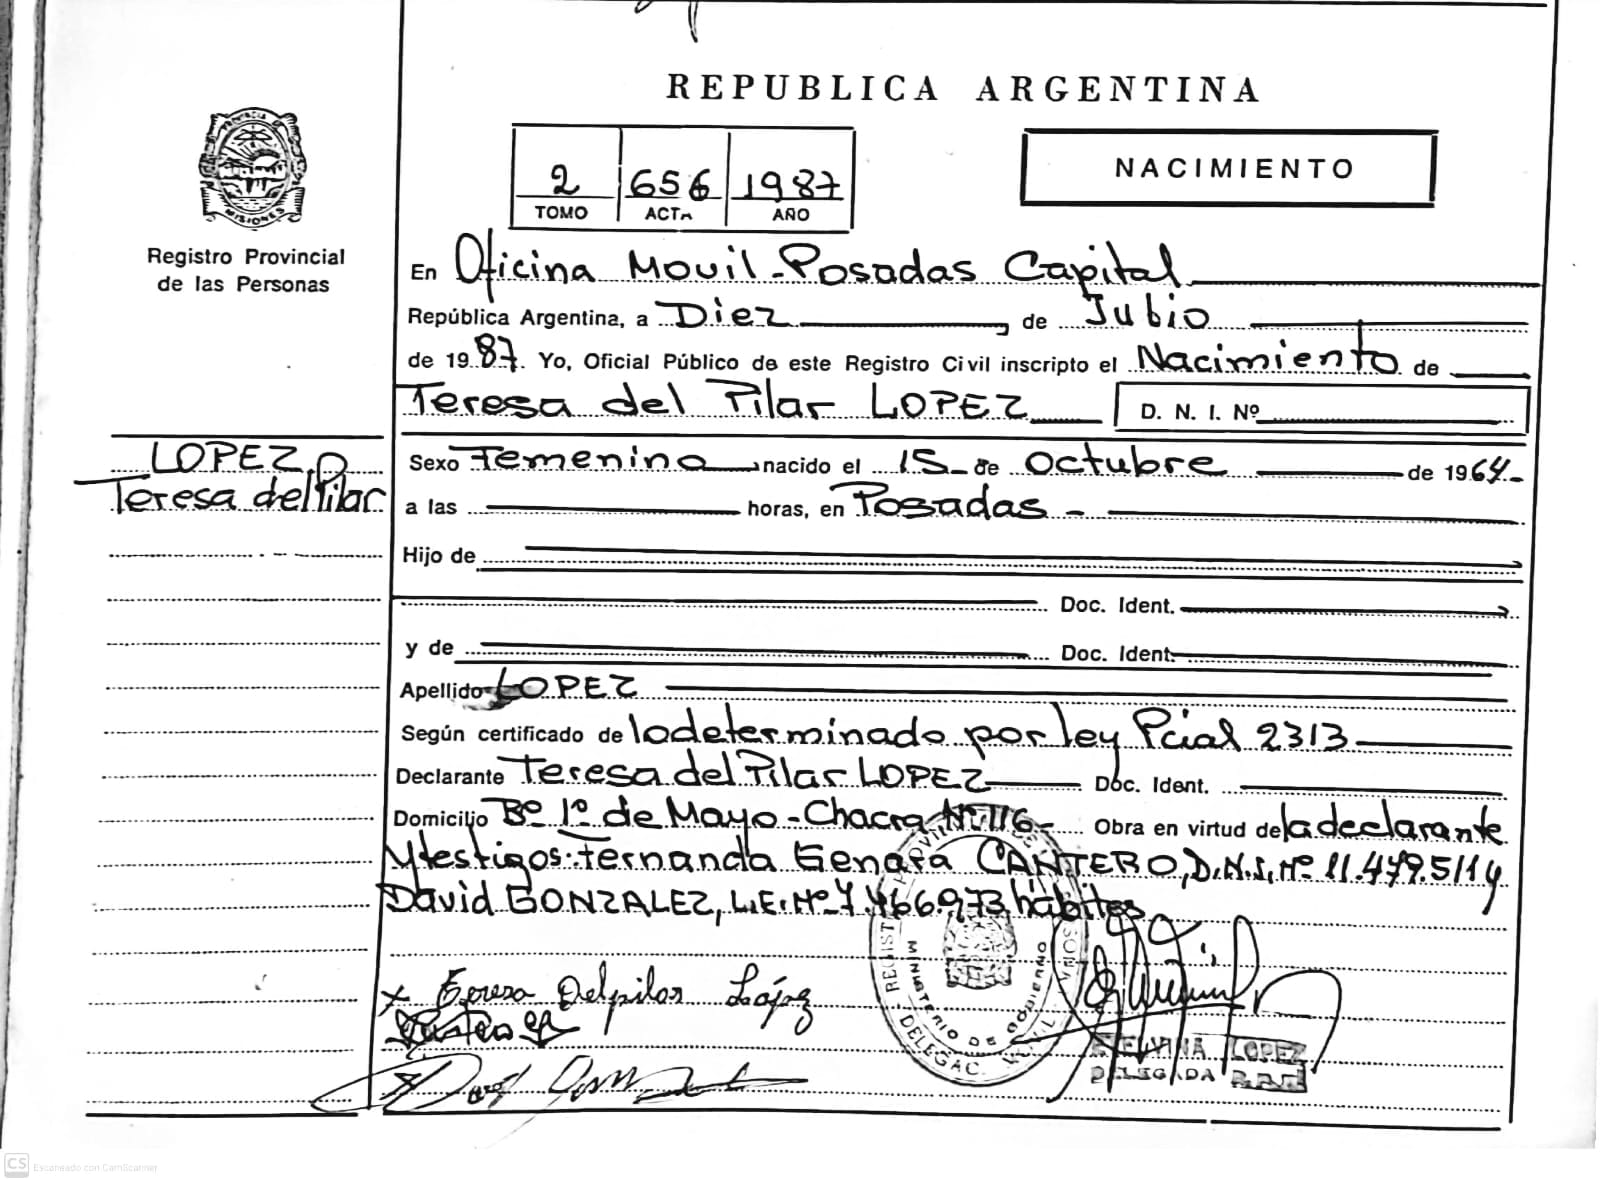 REPUBLICA ARGENTINA
2 656 1987
TOMO ACTA AÑO
NACIMIENTO
PROVINCIA DE
MISIONES
Registro Provincial
de las Personas
En Oficina Movil - Posadas Capital
República Argentina, a Diez de Julio
de 1987. Yo, Oficial Público de este Registro Civil inscripto el Nacimiento de
Teresa del Pilar LOPEZ D. N. I. Nº
LOPEZ
Teresa del Pilar
Sexo Femenino nacido el 15 - de octubre de 1964.-
a las horas, en Posadas -
Hijo de
Doc. Ident.
y de Doc. Ident.
Apellido LOPEZ
Según certificado de lo determinado por ley Pcial 2313
Declarante Teresa del Pilar LOPEZ Doc. Ident.
Domicilio Bº 1º de Mayo - Chacra Nº 116 - Obra en virtud de la declarante
y testigos: Fernanda Genara CANTERO, D.N.I. Nº 11.479.511 y
David GONZALEZ, L.E. Nº 7.466.973 hábiles
x Teresa Delpilar López
REGISTRO PROVINCIAL DE LAS PERSONAS
MINISTERIO DE GOBIERNO
DELEGAC. MOVIL
ETELVINA LOPEZ
DELEGADA
CS Escaneado con CamScanner